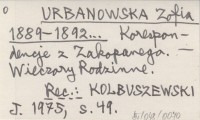 URBANOWSKA Zofia
1889-1892... Korespon-
dencje z Zakopanego.
Wieczory Rodzinne.
Rec.: KOLBUSZEWSKI
J. 1975, s. 49.